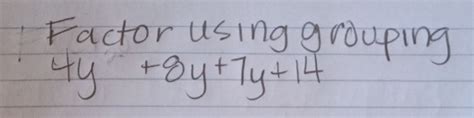 Factor using grouping
4y +8y+7y+14